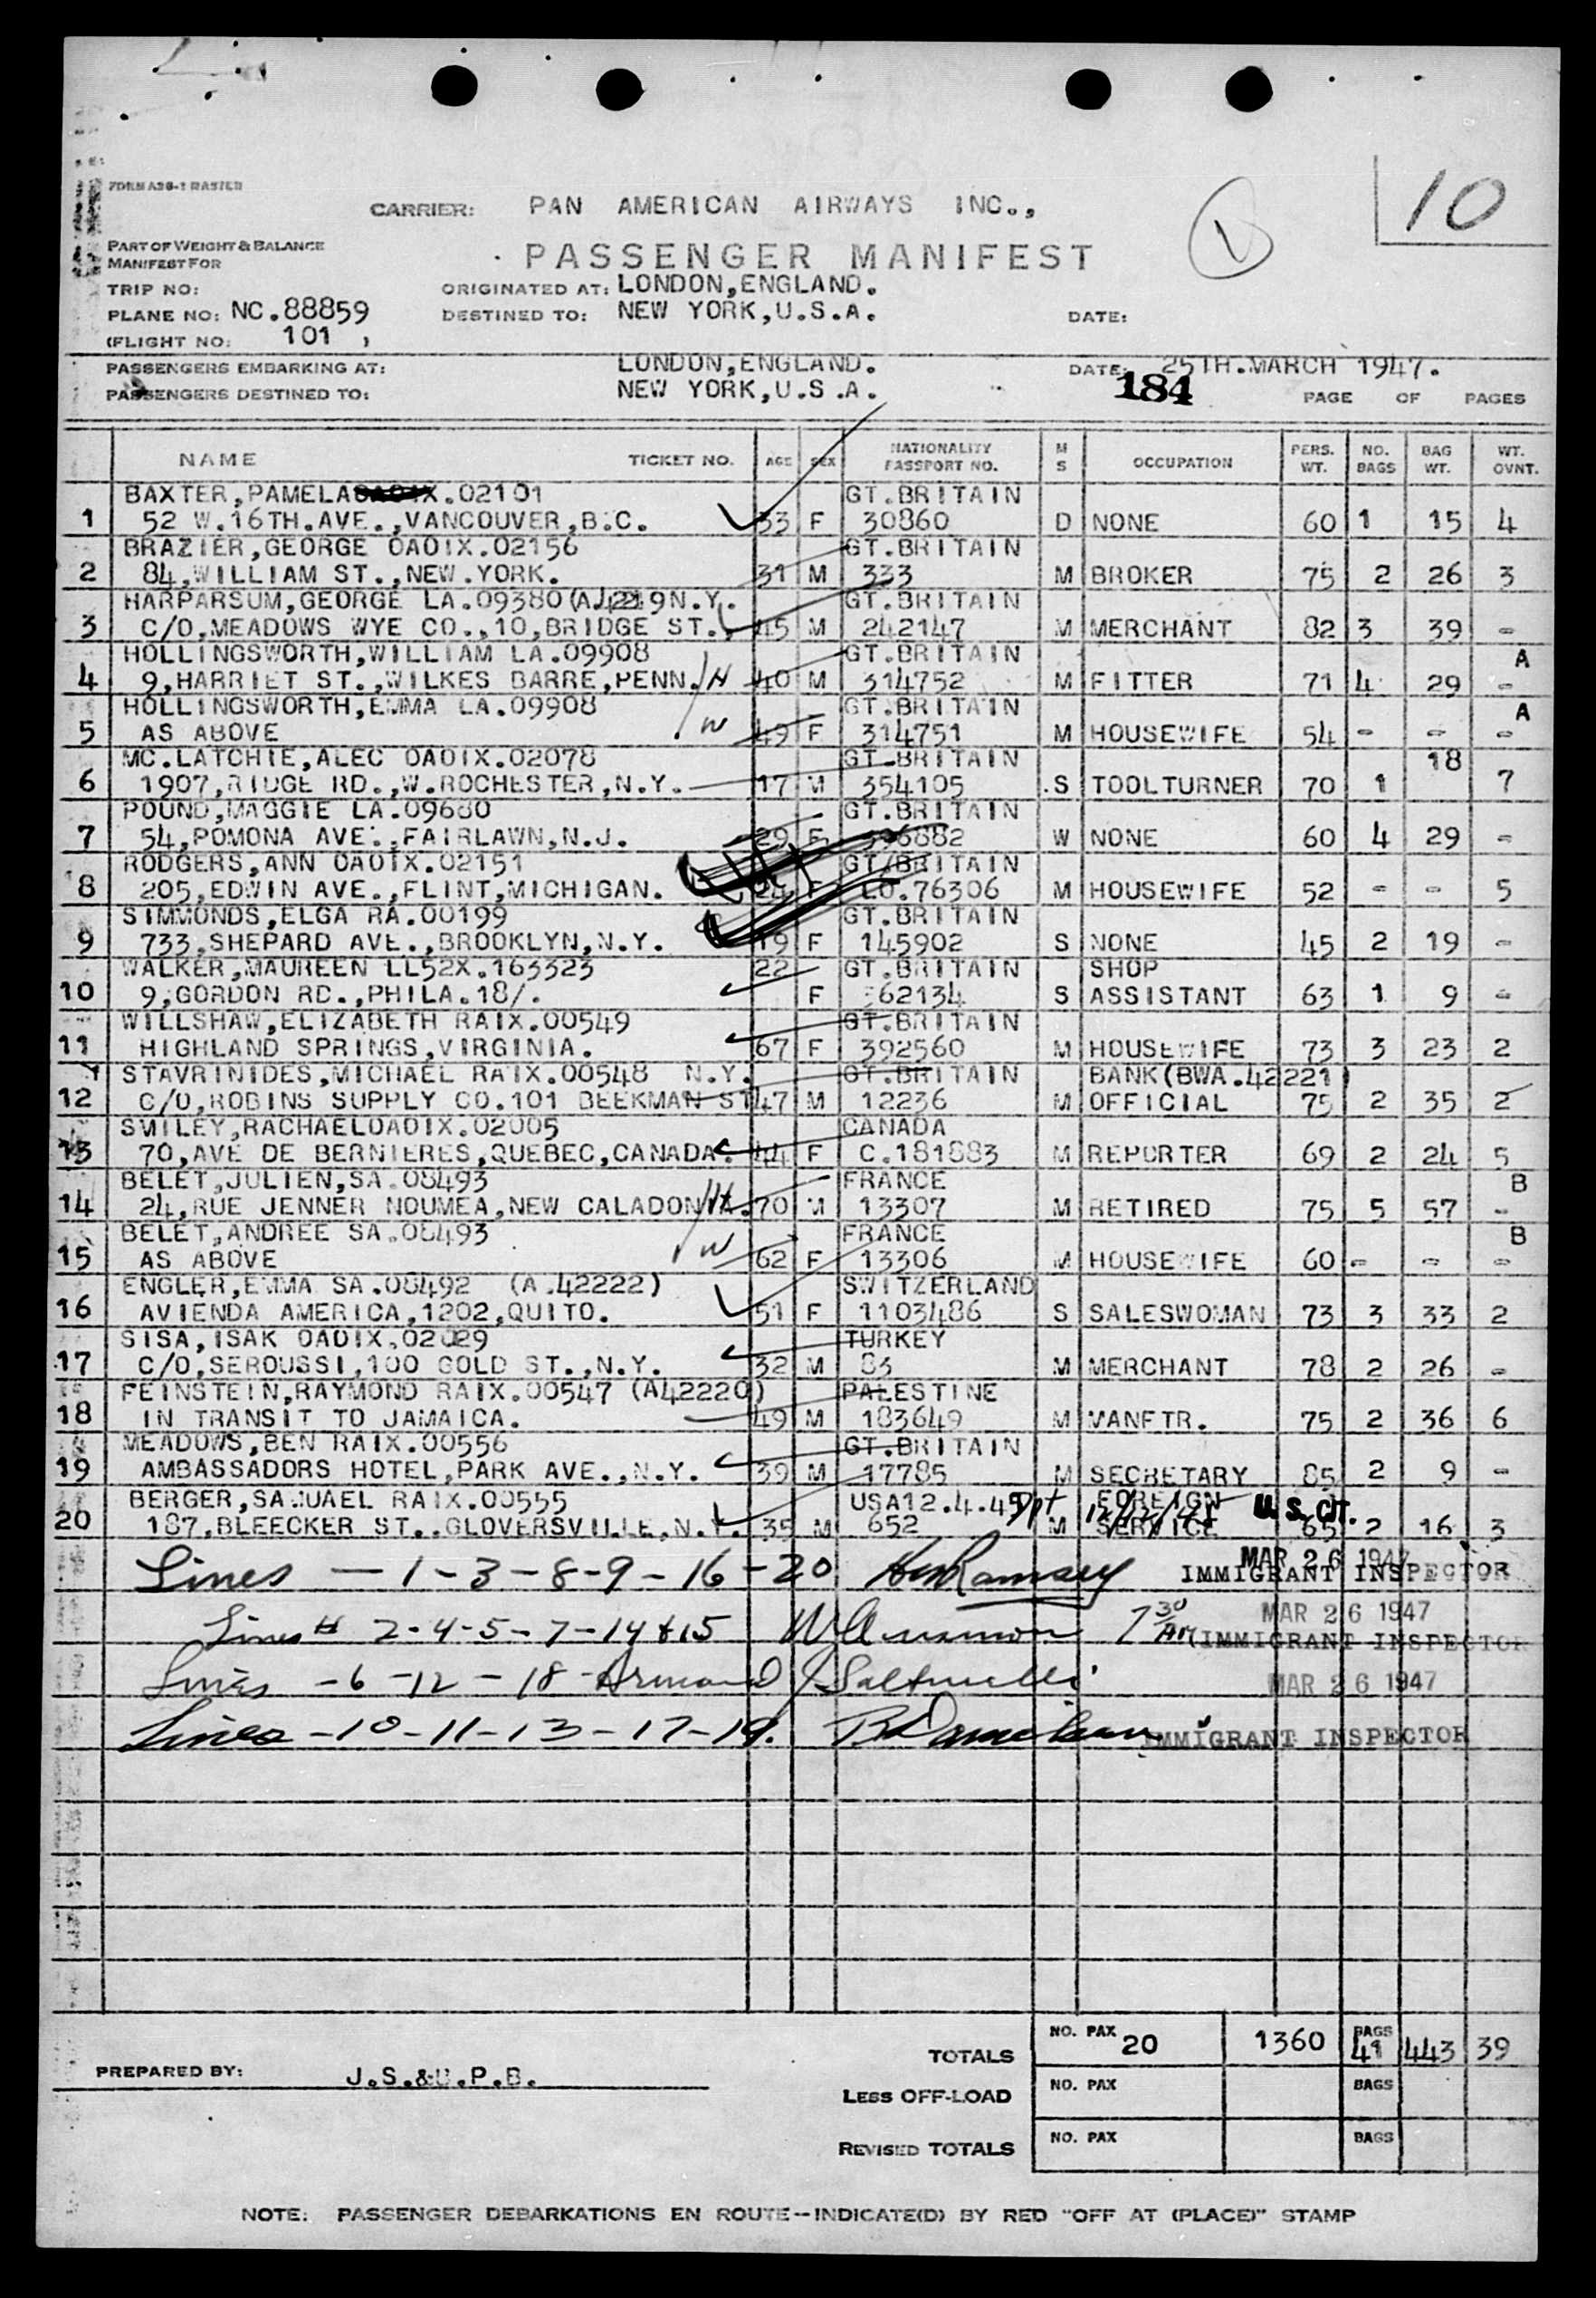 FORM A26-1 RASTER
CARRIER: PAN AMERICAN AIRWAYS INC.,
10
1
PART OF WEIGHT & BALANCE
MANIFEST FOR
PASSENGER MANIFEST
TRIP NO: ORIGINATED AT: LONDON,ENGLAND.
PLANE NO: NC.88859 DESTINED TO: NEW YORK,U.S.A. DATE:
(FLIGHT NO: 101 ,
PASSENGERS EMBARKING AT: LONDON,ENGLAND. DATE: 25TH.MARCH 1947.
184
PASSENGERS DESTINED TO: NEW YORK,U.S.A. PAGE OF PAGES
NAME TICKET NO. AGE SEX NATIONALITY PASSPORT NO. M S OCCUPATION PERS. WT. NO. BAGS BAG WT. WT. OVNT.
BAXTER,PAMELA X.02101 GT.BRITAIN
1 52 W.16TH.AVE.,VANCOUVER,B.C. 33 F 30860 D NONE 60 1 15 4
BRAZIER,GEORGE OAOIX.02156 GT.BRITAIN
2 84,WILLIAM ST.,NEW.YORK. 31 M 333 M BROKER 75 2 26 3
HARPARSUM,GEORGE LA.09380(A.42219 N.Y. GT.BRITAIN
3 C/O,MEADOWS WYE CO.,10,BRIDGE ST., 45 M 242147 M MERCHANT 82 3 39 -
HOLLINGSWORTH,WILLIAM LA.09908 GT.BRITAIN A
4 9,HARRIET ST.,WILKES BARRE,PENN. H 40 M 314752 M FITTER 71 4 29 -
HOLLINGSWORTH,EMMA LA.09908 GT.BRITAIN A
5 AS ABOVE W 49 F 314751 M HOUSEWIFE 54 - - -
MC.LATCHIE,ALEC OAOIX.02078 GT.BRITAIN 18
6 1907,RIDGE RD.,W.ROCHESTER,N.Y. 17 M 354105 S TOOLTURNER 70 1 7
POUND,MAGGIE LA.09680 GT.BRITAIN
7 54,POMONA AVE.,FAIRLAWN,N.J. 29 F 396882 W NONE 60 4 29 -
RODGERS,ANN OAOIX.02151 GT.BRITAIN
8 205,EDWIN AVE.,FLINT,MICHIGAN. 24 F LO.76306 M HOUSEWIFE 52 - - 5
SIMMONDS,ELGA RA.00199 GT.BRITAIN
9 733,SHEPARD AVE.,BROOKLYN,N.Y. 19 F 145902 S NONE 45 2 19 -
WALKER,MAUREEN LL52X.163323 22 GT.BRITAIN SHOP
10 9,GORDON RD.,PHILA.18/. F 362134 S ASSISTANT 63 1 9 -
WILLSHAW,ELIZABETH RAIX.00549 GT.BRITAIN
11 HIGHLAND SPRINGS,VIRGINIA. 67 F 392560 M HOUSEWIFE 73 3 23 2
STAVRINIDES,MICHAEL RAIX.00548 N.Y. GT.BRITAIN BANK(BWA.42221)
12 C/O,ROBINS SUPPLY CO.101 BEEKMAN ST 47 M 12236 M OFFICIAL 75 2 35 2
SMILEY,RACHAELOAOIX.02005 CANADA
13 70,AVE DE BERNIERES,QUEBEC,CANADA. 44 F C.181883 M REPORTER 69 2 24 5
BELET,JULIEN,SA.08493 FRANCE B
14 24,RUE JENNER NOUMEA,NEW CALADONIA. H 70 M 13307 M RETIRED 75 5 57 -
BELET,ANDREE SA.08493 FRANCE B
15 AS ABOVE W 62 F 13306 M HOUSEWIFE 60 - - -
ENGLER,EMMA SA.08492 (A.42222) SWITZERLAND
16 AVIENDA AMERICA,1202,QUITO. 51 F 1103486 S SALESWOMAN 73 3 33 2
SISA,ISAK OAOIX.02029 TURKEY
17 C/O,SEROUSSI,100 GOLD ST.,N.Y. 32 M 83 M MERCHANT 78 2 26 -
FEINSTEIN,RAYMOND RAIX.00547 (A42220) PALESTINE
18 IN TRANSIT TO JAMAICA. 49 M 183649 M MANFTR. 75 2 36 6
MEADOWS,BEN RAIX.00556 GT.BRITAIN
19 AMBASSADORS HOTEL,PARK AVE.,N.Y. 39 M 17785 M SECRETARY 85 2 9 -
BERGER,SAMUAEL RAIX.00555 USA12.4.45 Dpt FOREIGN U.S.CIT.
20 187,BLEECKER ST..GLOVERSVILLE,N.Y. 35 M 652 M SERVICE 65 2 16 3
Lines - 1-3-8-9-16-20 Ramsey MAR 26 1947 IMMIGRANT INSPECTOR
Lines # 2-4-5-7-14 & 15 7 30 AM MAR 26 1947 IMMIGRANT INSPECTOR
Lines -6-12-18 Armand J MAR 26 1947
Lines -10-11-13-17-19. IMMIGRANT INSPECTOR
TOTALS NO. PAX 20 1360 BAGS 41 443 39
PREPARED BY: J.S.&U.P.B.
LESS OFF-LOAD NO. PAX BAGS
REVISED TOTALS NO. PAX BAGS
NOTE: PASSENGER DEBARKATIONS EN ROUTE--INDICATE(D) BY RED "OFF AT (PLACE)" STAMP